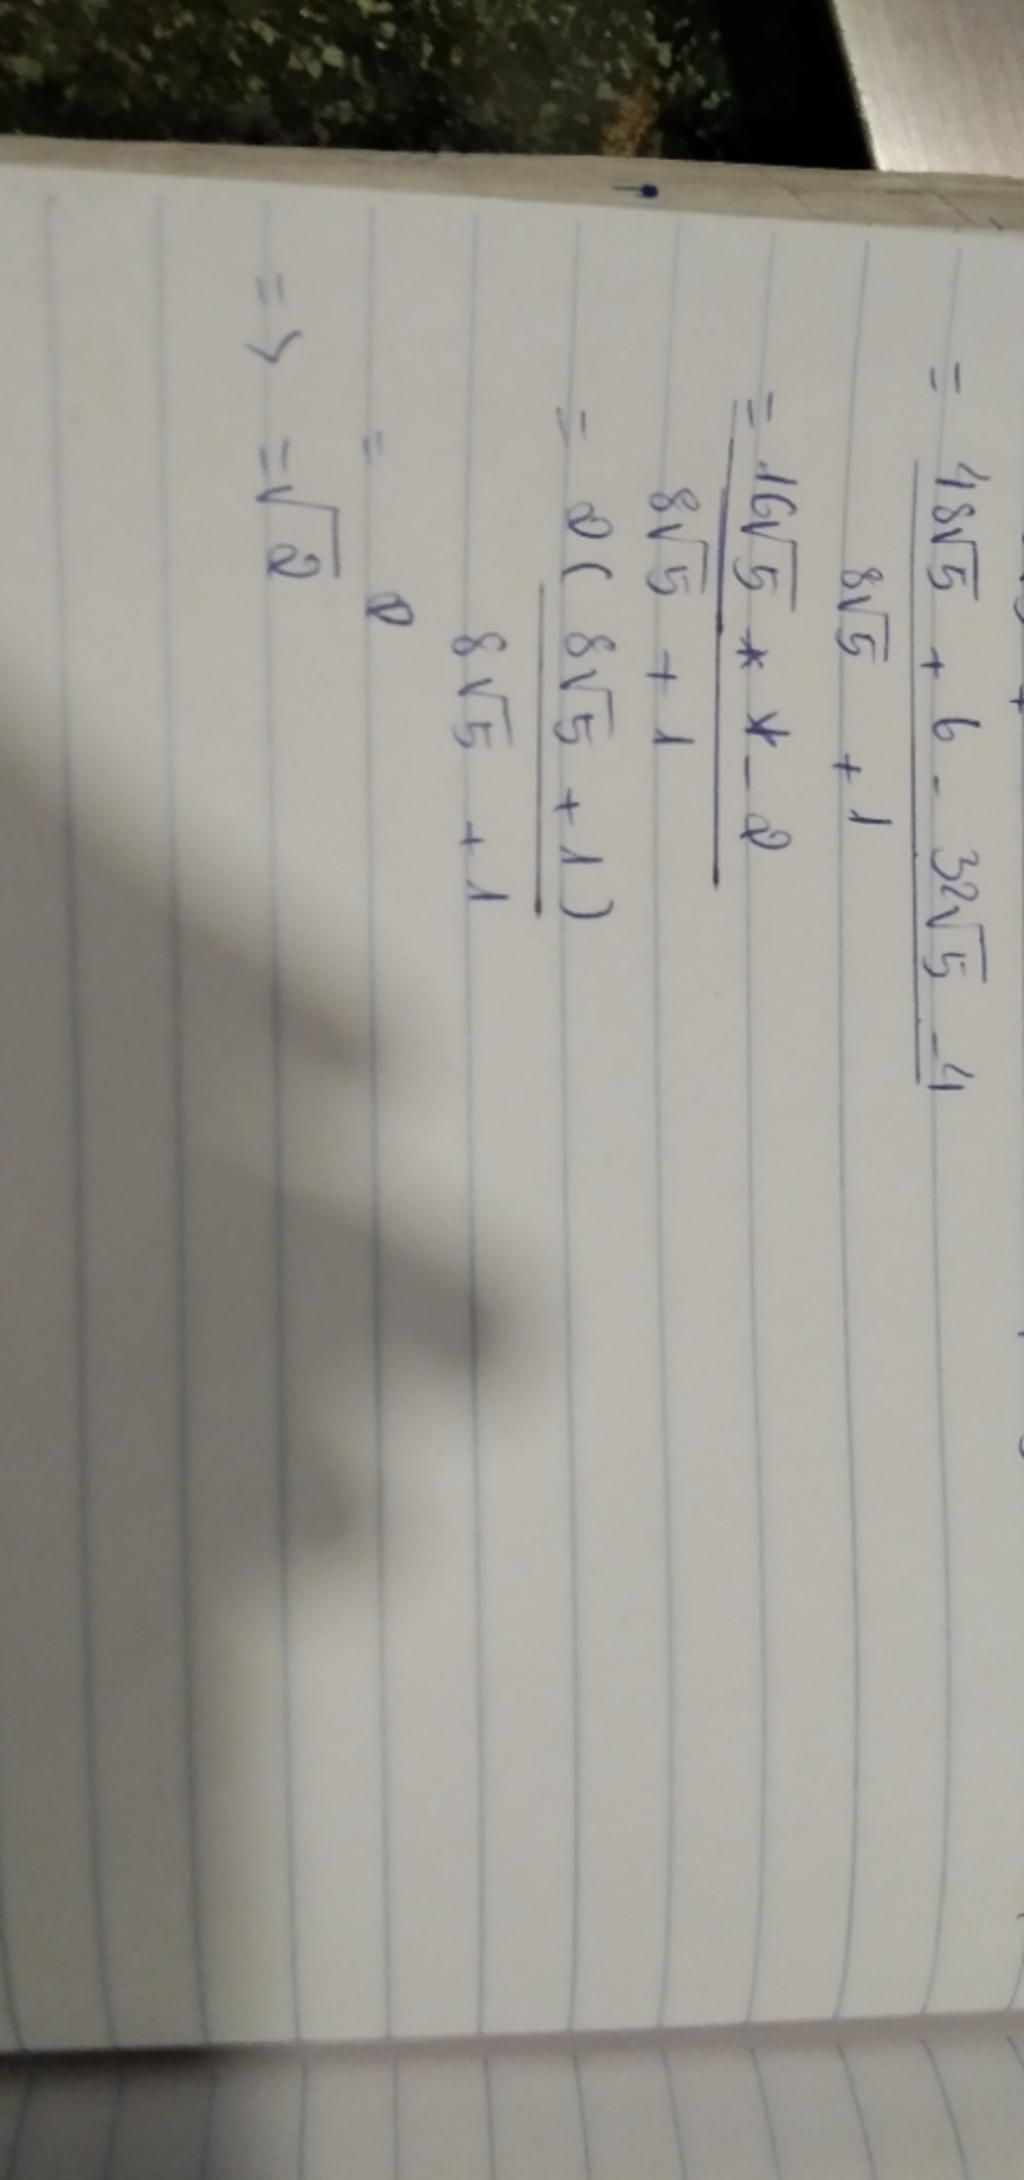 = 48√5 + 6 - 32√5 - 4
8√5 + 1
= 16√5 * * - 2
8√5 + 1
= 2 ( 8√5 + 1 )
8√5 + 1
= 2
=> = √2